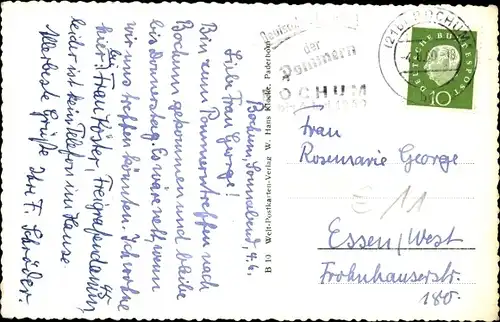 Bochum, Sonnabend, 4.6.
Liebe Frau George!
Bin zum Pommerntreffen nach
Bochum gekommen und bleibe
bis Donnerstag. Es wäre nett, wenn
wir uns treffen könnten. Ich wohne
hier: bei Frau Köster, Freigrafendamm 45,
leider ist kein Telefon im Hause.
Allerbeste Grüße Ihre F. Schröder.
B 10 Welt-Postkarten-Verlag W. Hans Klocke, Paderborn
der
Pommern
BOCHUM
(21b) BOCHUM
DEUTSCHE BUNDESPOST
10
Frau
Rosemarie George
E 11
Essen/West
Frohnhauserstr.
180.